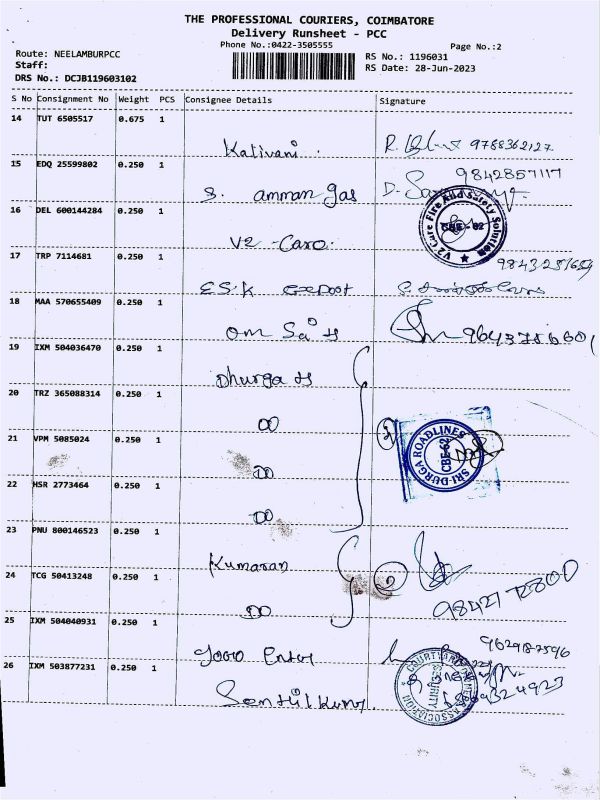 THE PROFESSIONAL COURIERS, COIMBATORE
Delivery Runsheet - PCC
Phone No.:0422-3505555
Page No.:2
Route: NEELAMBURPCC
RS No.: 1196031
Staff:
RS Date: 28-Jun-2023
DRS No.: DCJB119603102
S No Consignment No Weight PCS Consignee Details Signature
14 TUT 6505517 0.675 1
Kalivani. 9788362127
15 EDQ 25599802 0.250 1
9842857117
S. amman gas
16 DEL 600144284 0.250 1
V2 Care Fire And Safety Solution
CBE - 62
V2 - Care.
17 TRP 7114681 0.250 1
E.S.K
18 MAA 570655409 0.250 1
Om Sai
19 IXM 504036470 0.250 1
Dhurga
20 TRZ 365088314 0.250 1
DO
21 VPM 5085024 0.250 1
SRI-DURGA ROADLINES
CBE-62
DO
22 HSR 2773464 0.250 1
DO
23 PNU 800146523 0.250 1
Kumaran
24 TCG 50413248 0.250 1
DO
25 IXM 504040931 0.250 1
962987596
26 IXM 503877231 0.250 1
SECURITY
ASSOCIATION